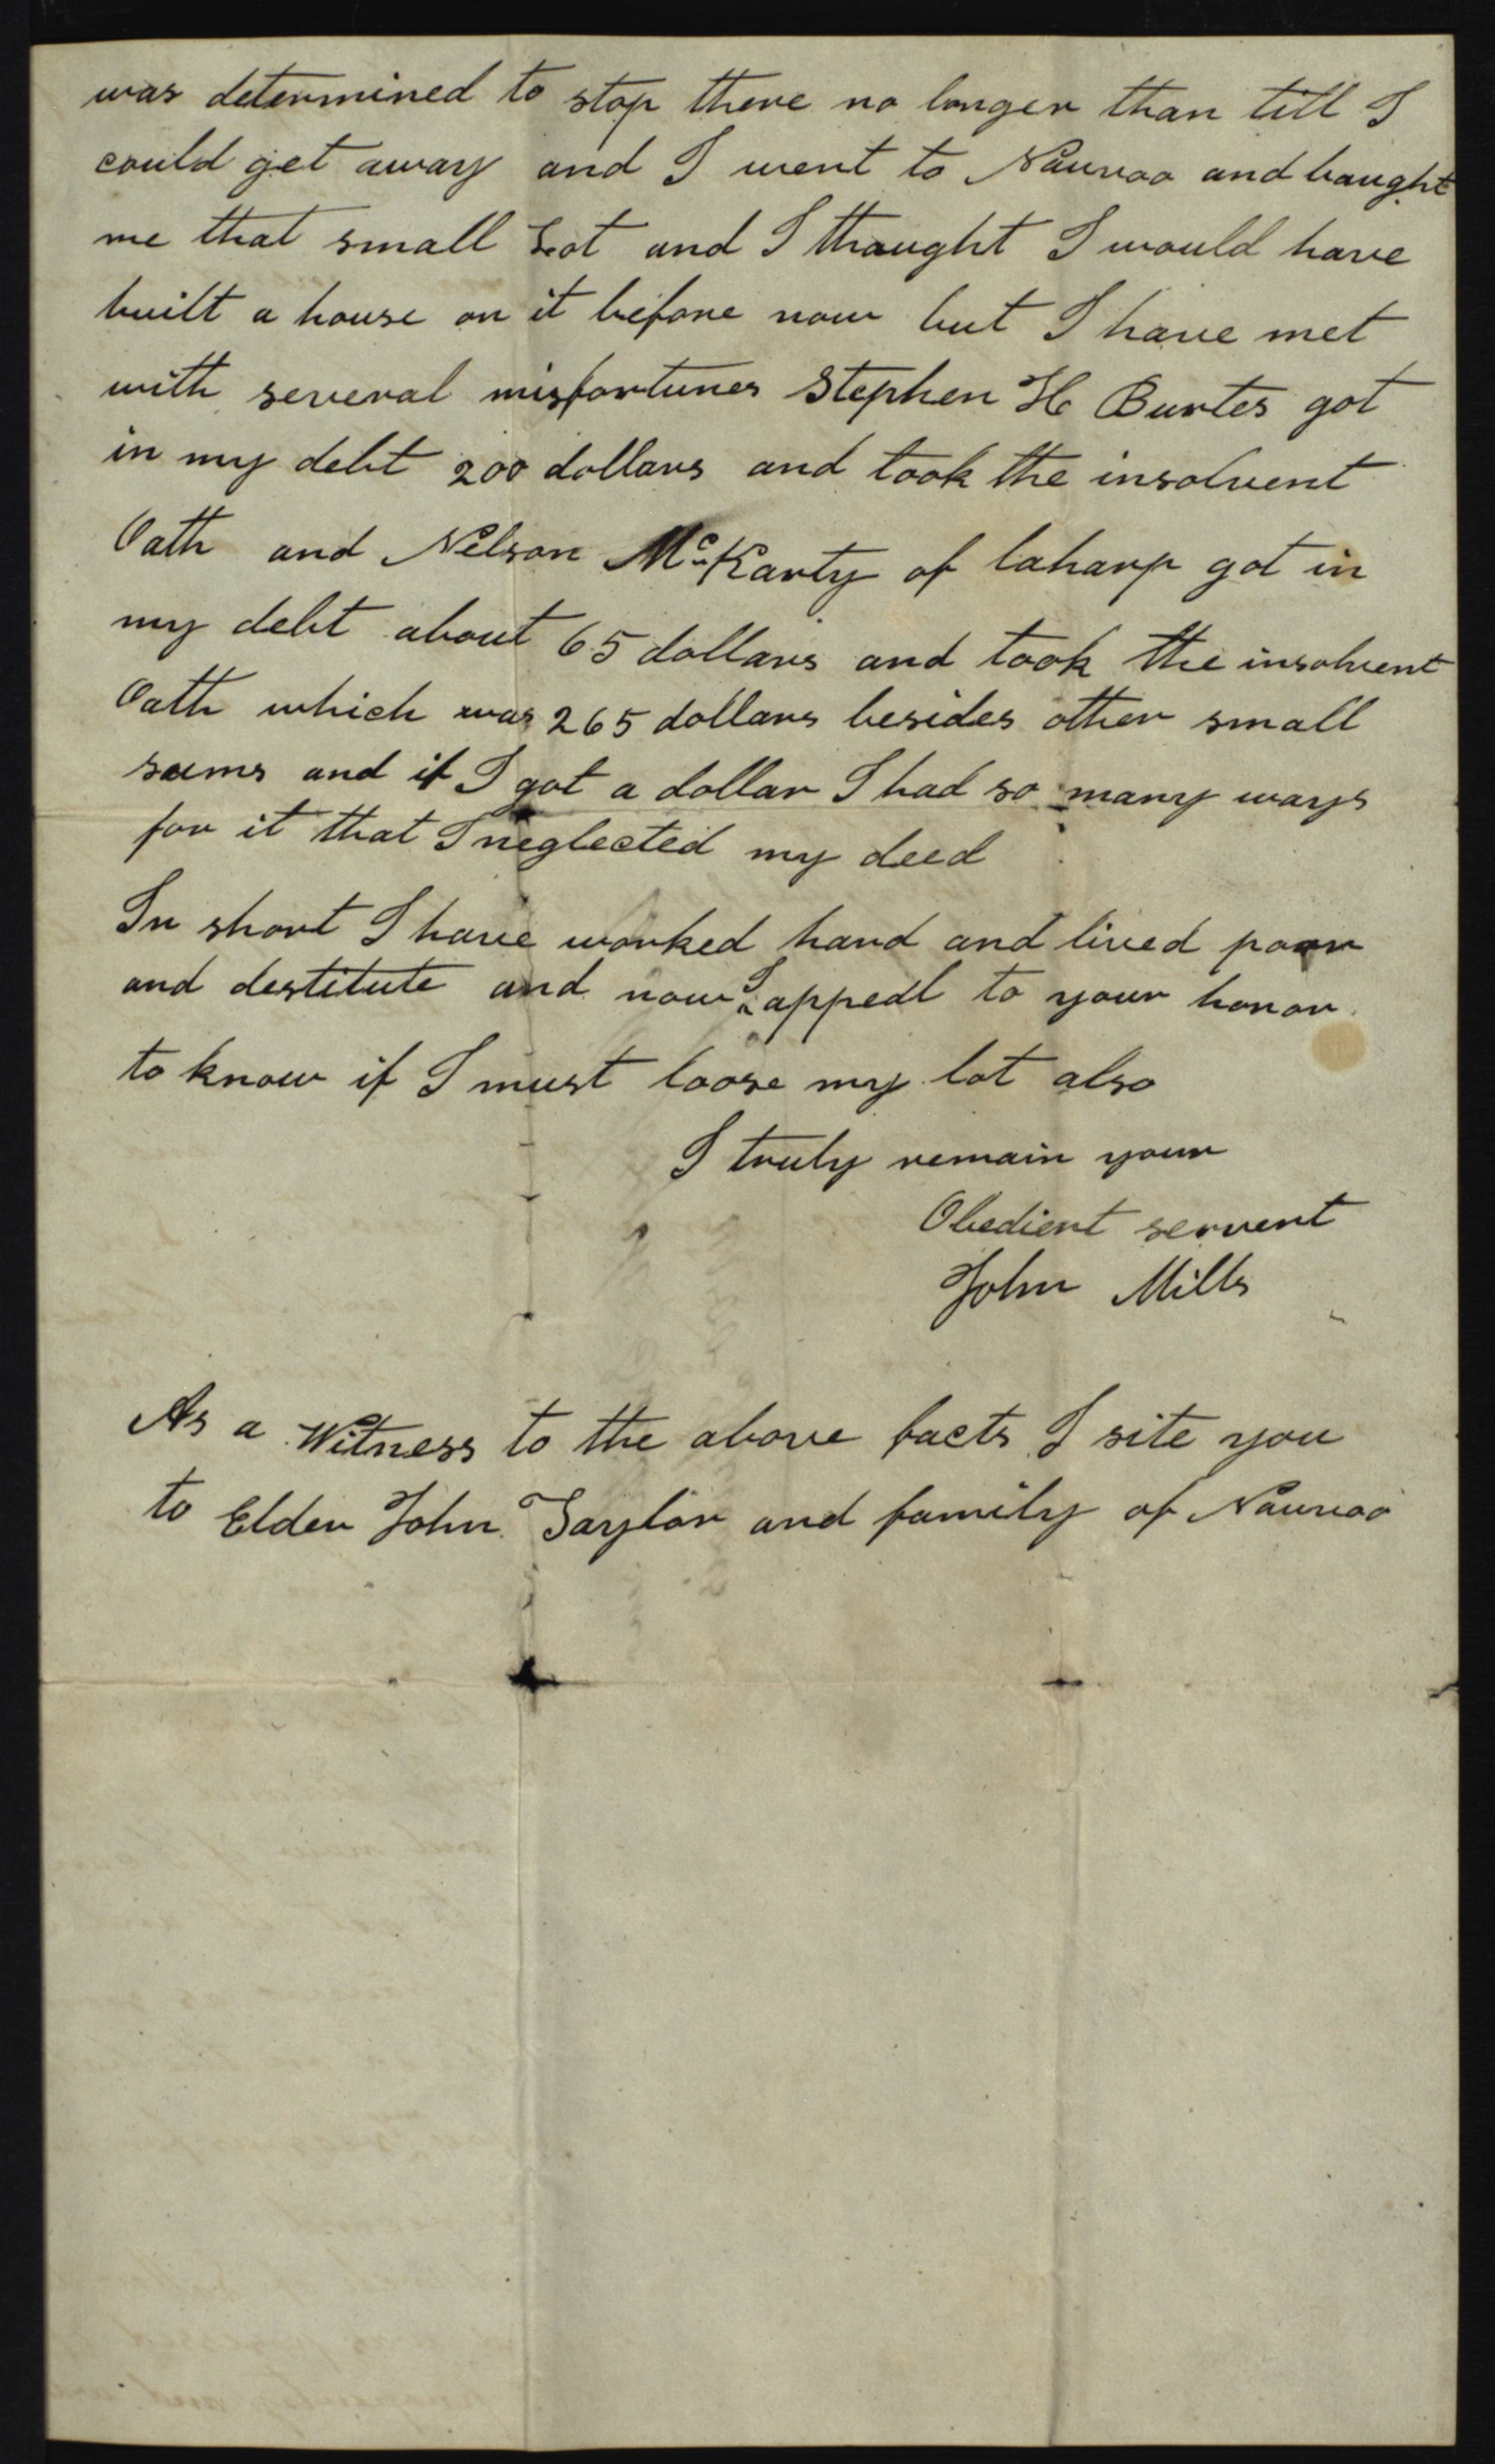 was determined to stop there no longer than till I
could get away and I went to Nauvoo and baught
me that small Lot and I thaught I would have
built a house on it before now but I have met
with several misfortunes Stephen H Burtes got
in my debt 200 dollars and took the insolvent
Oath and Nelson Mc Karty of laharp got in
my debt about 65 dollars and took the insolvent
Oath which was 265 dollars besides other small
sums and if I got a dollar I had so many ways
for it that I neglected my deed
In short I have worked hard and lived poor
and destitute and now I appedl to your honor
to know if I must loose my lot also
I truly remain your
Obedient servent
John Mills
As a Witness to the above facts I site you
to Elder John Taylor and family of Nauvoo